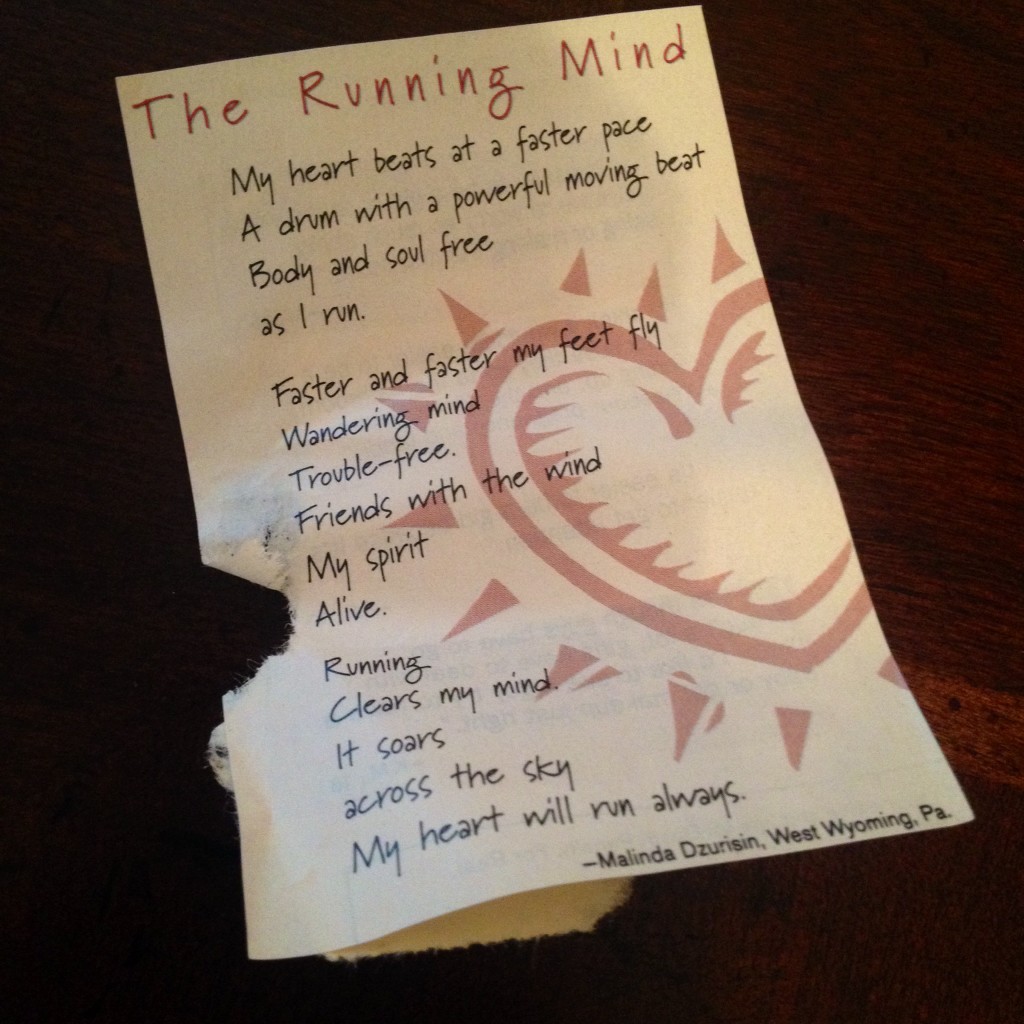 The Running Mind
My heart beats at a faster pace
A drum with a powerful moving beat
Body and soul free
as I run.
Faster and faster my feet fly
Wandering mind
Trouble-free.
Friends with the wind
My spirit
Alive.
Running
Clears my mind.
It soars
across the sky
My heart will run always.
–Malinda Dzurisin, West Wyoming, Pa.